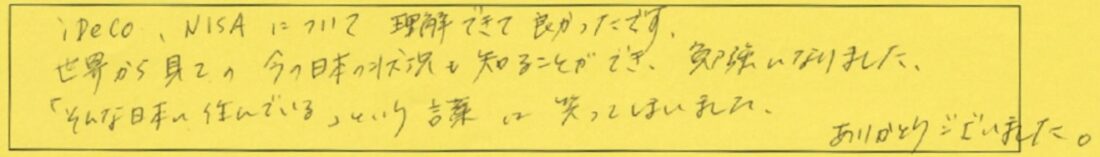 iDeCo、NISAについて理解できて良かったです。
世界から見ての今の日本の状況も知ることができ、勉強になりました。
「そんな日本に住んでいる」という言葉に笑ってしまいました。
ありがとうございました。